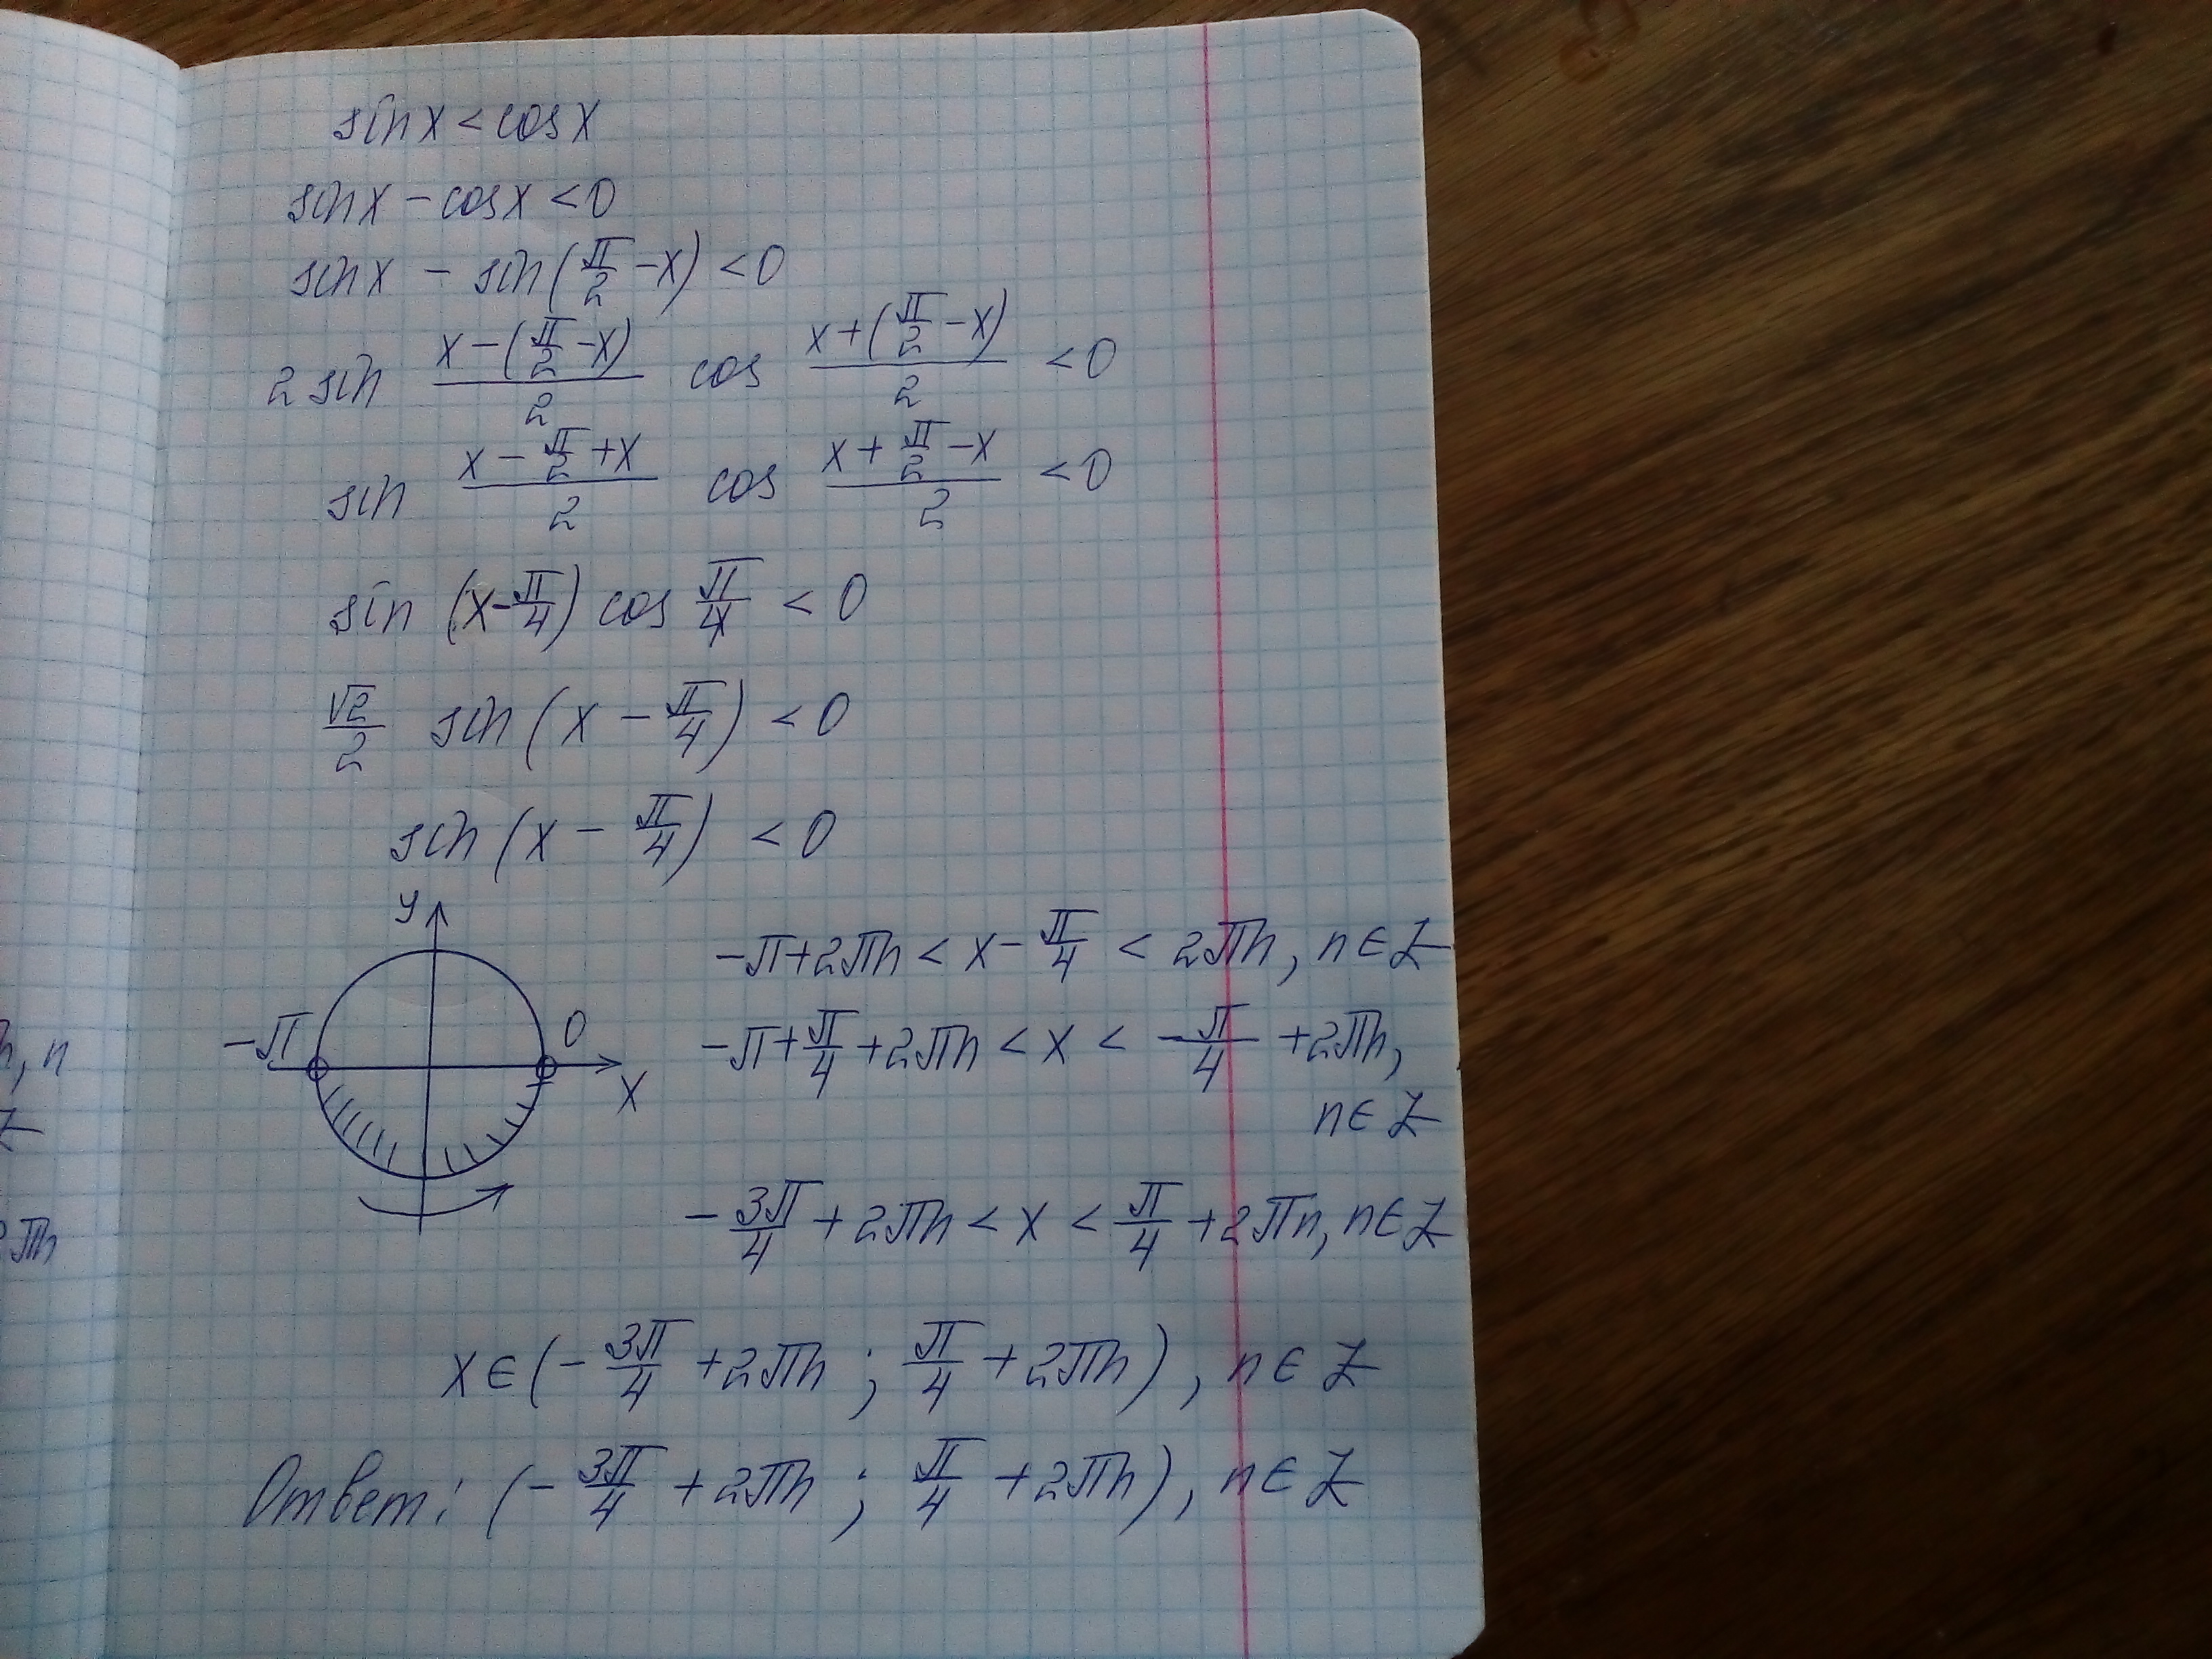 sin x < cos x
sin x - cos x < 0
sin x - sin(π/2 - x) < 0
2 sin (x - (π/2 - x))/2 cos (x + (π/2 - x))/2 < 0
sin (x - π/2 + x)/2 cos (x + π/2 - x)/2 < 0
sin (x - π/4) cos π/4 < 0
√2/2 sin (x - π/4) < 0
sin (x - π/4) < 0
y
-π + 2πn < x - π/4 < 2πn, n ∈ Z
-π
0
x
-π + π/4 + 2πn < x < -π/4 + 2πn,
n ∈ Z
-3π/4 + 2πn < x < π/4 + 2πn, n ∈ Z
x ∈ (-3π/4 + 2πn ; π/4 + 2πn), n ∈ Z
Ответ: (-3π/4 + 2πn ; π/4 + 2πn), n ∈ Z
n, n
Z
πn